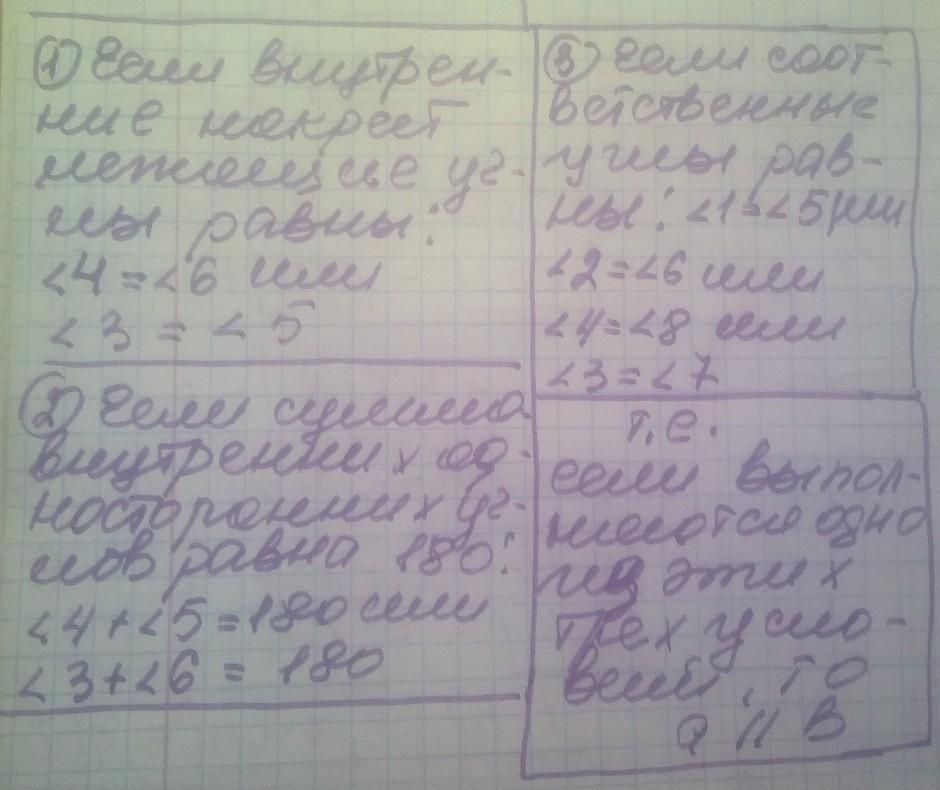 1) Если внутрен-
ние накрест
лежащие уг-
лы равны:
∠4=∠6 или
∠3 = ∠5
2) Если сумма
внутренних од-
носторонних уг-
лов равна 180:
∠4+∠5=180 или
∠3+∠6 = 180
3) Если соот-
ветственные
углы рав-
ны: ∠1=∠5 или
∠2=∠6 или
∠4=∠8 или
∠3=∠7
т.е.
если выпол-
няются одно
из этих
трех усло-
вий, то
a || b